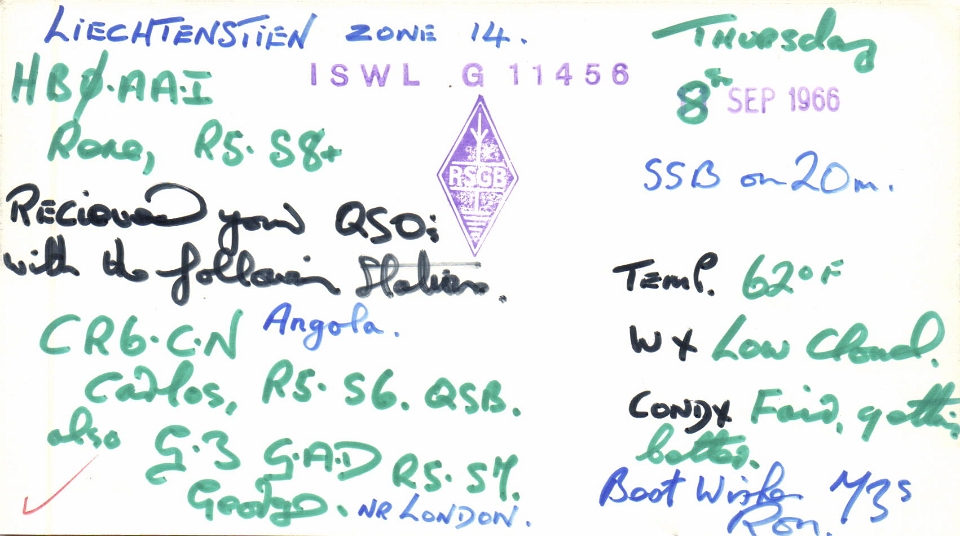 LIECHTENSTIEN ZONE 14.
ISWL G 11456
HBØ·AAI
Rone, R5· S8+
RSGB
RECIEVED your QSO:
with the following Stations.
CR6·C·N Angola.
Carlos, R5· S6. QSB.
also G·3 G·A·D R5·S7.
George. NR LONDON.
THURSday
8th SEP 1966
SSB on 20m.
TEMP. 62°F
WX Low Cloud.
CONDX Fair, getting
better.
Best Wishes 73s
Ron.